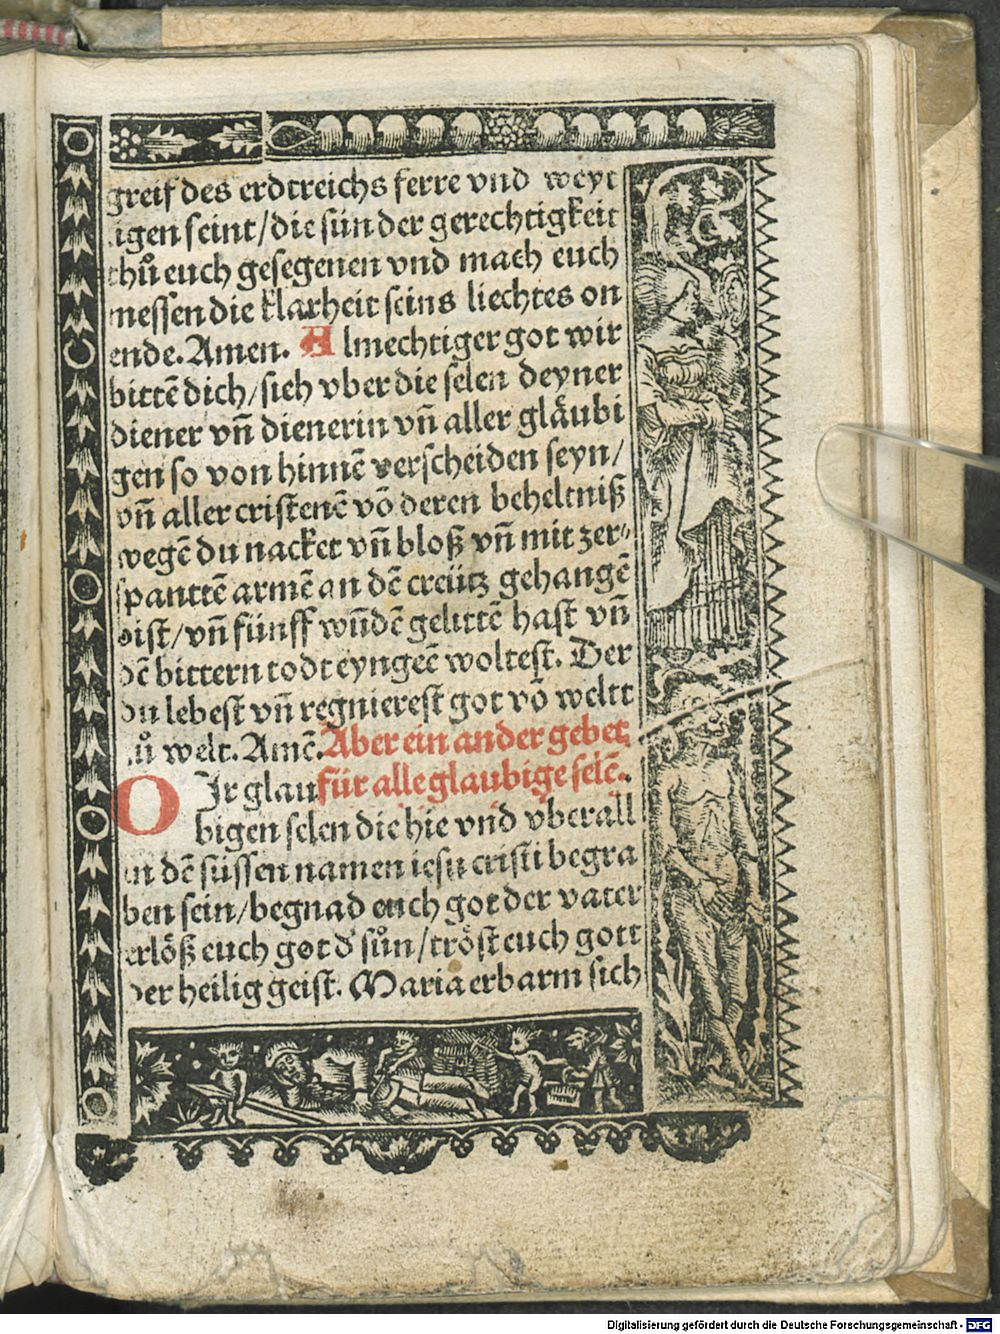 greif des erdtreichs ferre vnd weyt
igen seint/die sün der gerechtigkeit
thů euch gesegenen vnd mach euch
messen die klarheit seins liechtes on
ende. Amen. Almechtiger got wir
bittē dich/sieh vber die selen deyner
diener vn̄ dienerin vn̄ aller gläubi
gen so von hinnē verscheiden seyn/
vn̄ aller cristenē vō deren beheltniß
wegē du nacket vn̄ bloß vn̄ mit zer⸗
spanttē armē an dē creütz gehangē
bist/vn̄ fünff wn̄dē gelittē hast vn̄
dē bittern todt eyngeē woltest. Der
du lebest vn̄ regnierest got vō weltt
zů welt. Amē. Aber ein ander gebet
für alle glaubige selē.
O Ir glau
bigen selen die hie vnd vberall
in dē süssen namen iesu cristi begra
ben sein/begnad euch got der vater
erlöß euch got d' sůn/tröst euch gott
der heilig geist. Maria erbarm sich
Digitalisierung gefördert durch die Deutsche Forschungsgemeinschaft - DFG